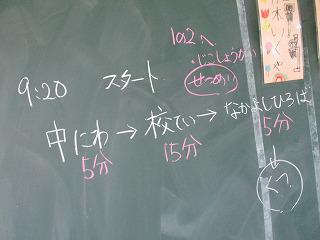 1の2へ
・じこしょうかい
せ〜めい
9:20 スタート
中にわ→校てい→なかよしひろば
5分 15分 5分
↓